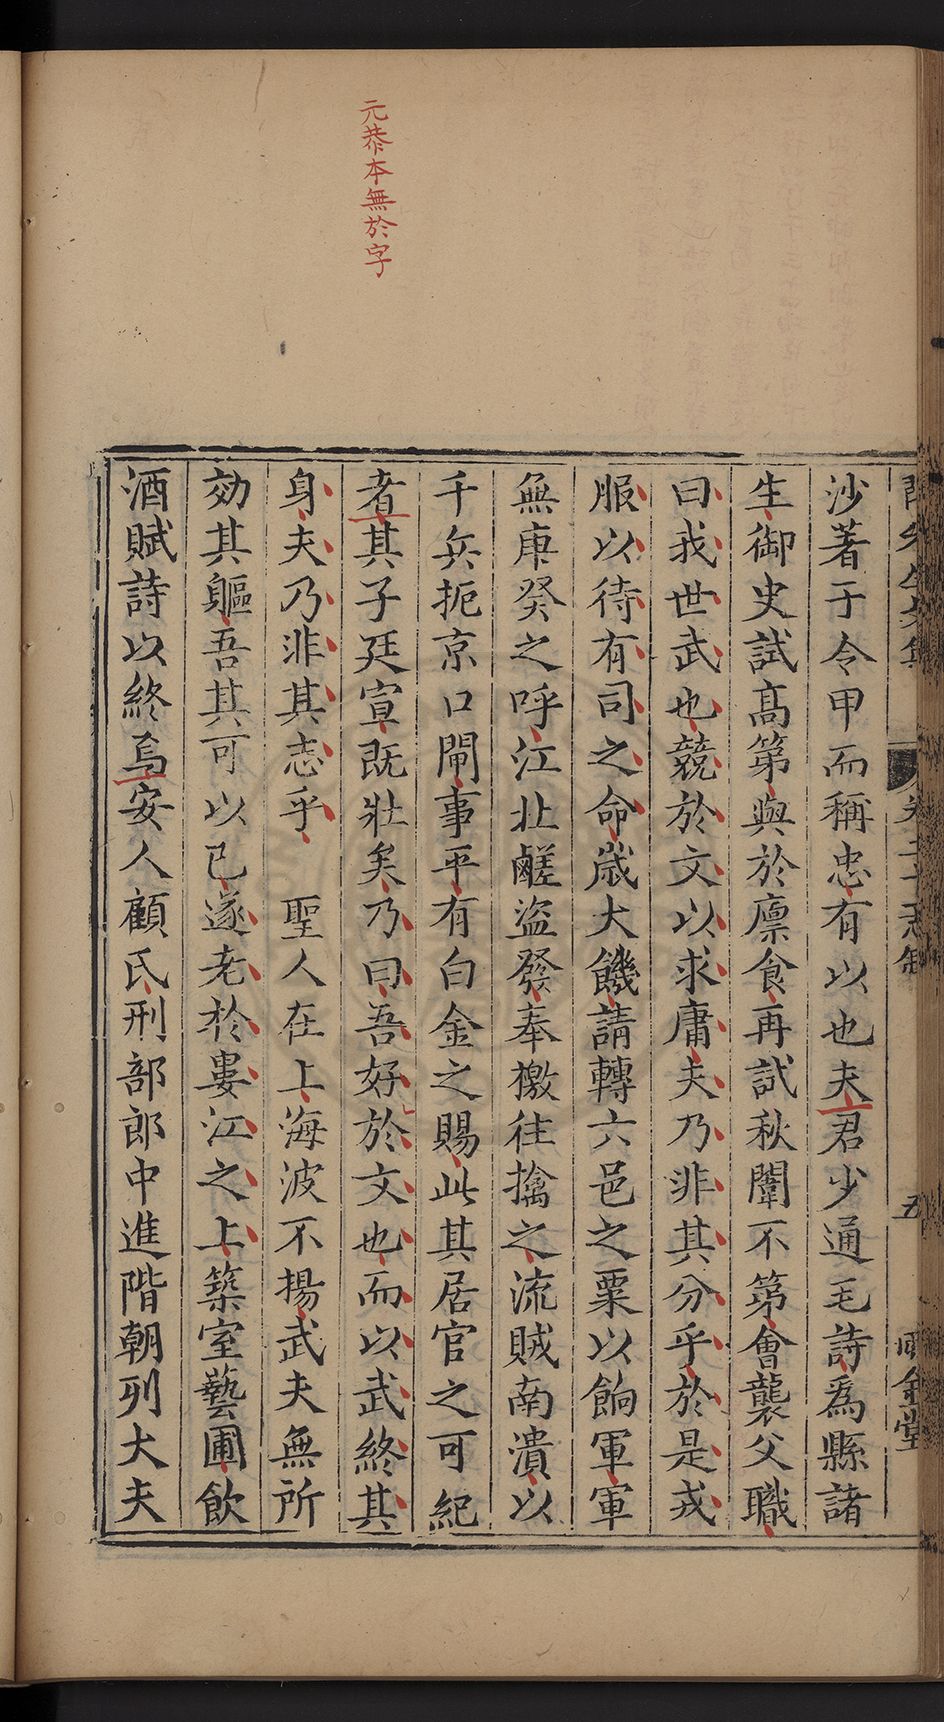 元恭本無於字
沙著于令甲而稱忠有以也夫君少通毛詩爲縣諸
生御史試高第與於廩食再試秋闈不第會襲父職
曰我世武也競於文以求庸夫乃非其分乎於是戎
服以待有司之命歲大饑請轉六邑之粟以餉軍軍
無庚癸之呼江北鹺盜發奉檄往擒之流賊南潰以
千兵扼京口閘事平有白金之賜此其居官之可紀
者其子廷宣既壯矣乃曰吾好於文也而以武終其
身夫乃非其志乎　聖人在上海波不揚武夫無所
効其軀吾其可以已遂老於婁江之上築室藝圃飲
酒賦詩以終焉安人顧氏刑部郎中進階朝列大夫
五